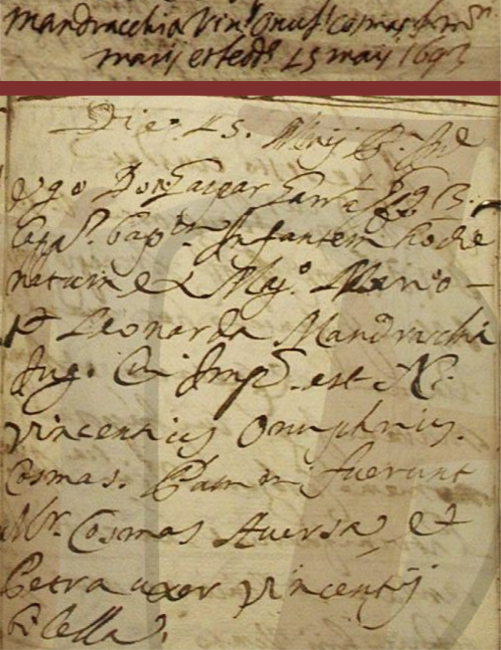 Mandracchia Vin.s Onuf.s Cosmas
marij et Led.e 15 maij 1693
Die 15. Maij P.e Ind.e
ego Don Gaspar 1693.
Cap.s Bap.m Infantem hodie
natum ex Mag.o Mario
et Leonarda Mandracchia
Jug. Cui Imp.m est N.
Vincentius Onuphrius.
Cosmas. Patrini fuerunt
M.r Cosmas Aversa et
Petra uxor Vincentij
Bilella.